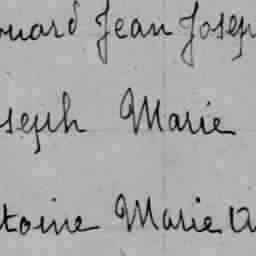 ouard Jean Josep
seph Marie
toine Marie A